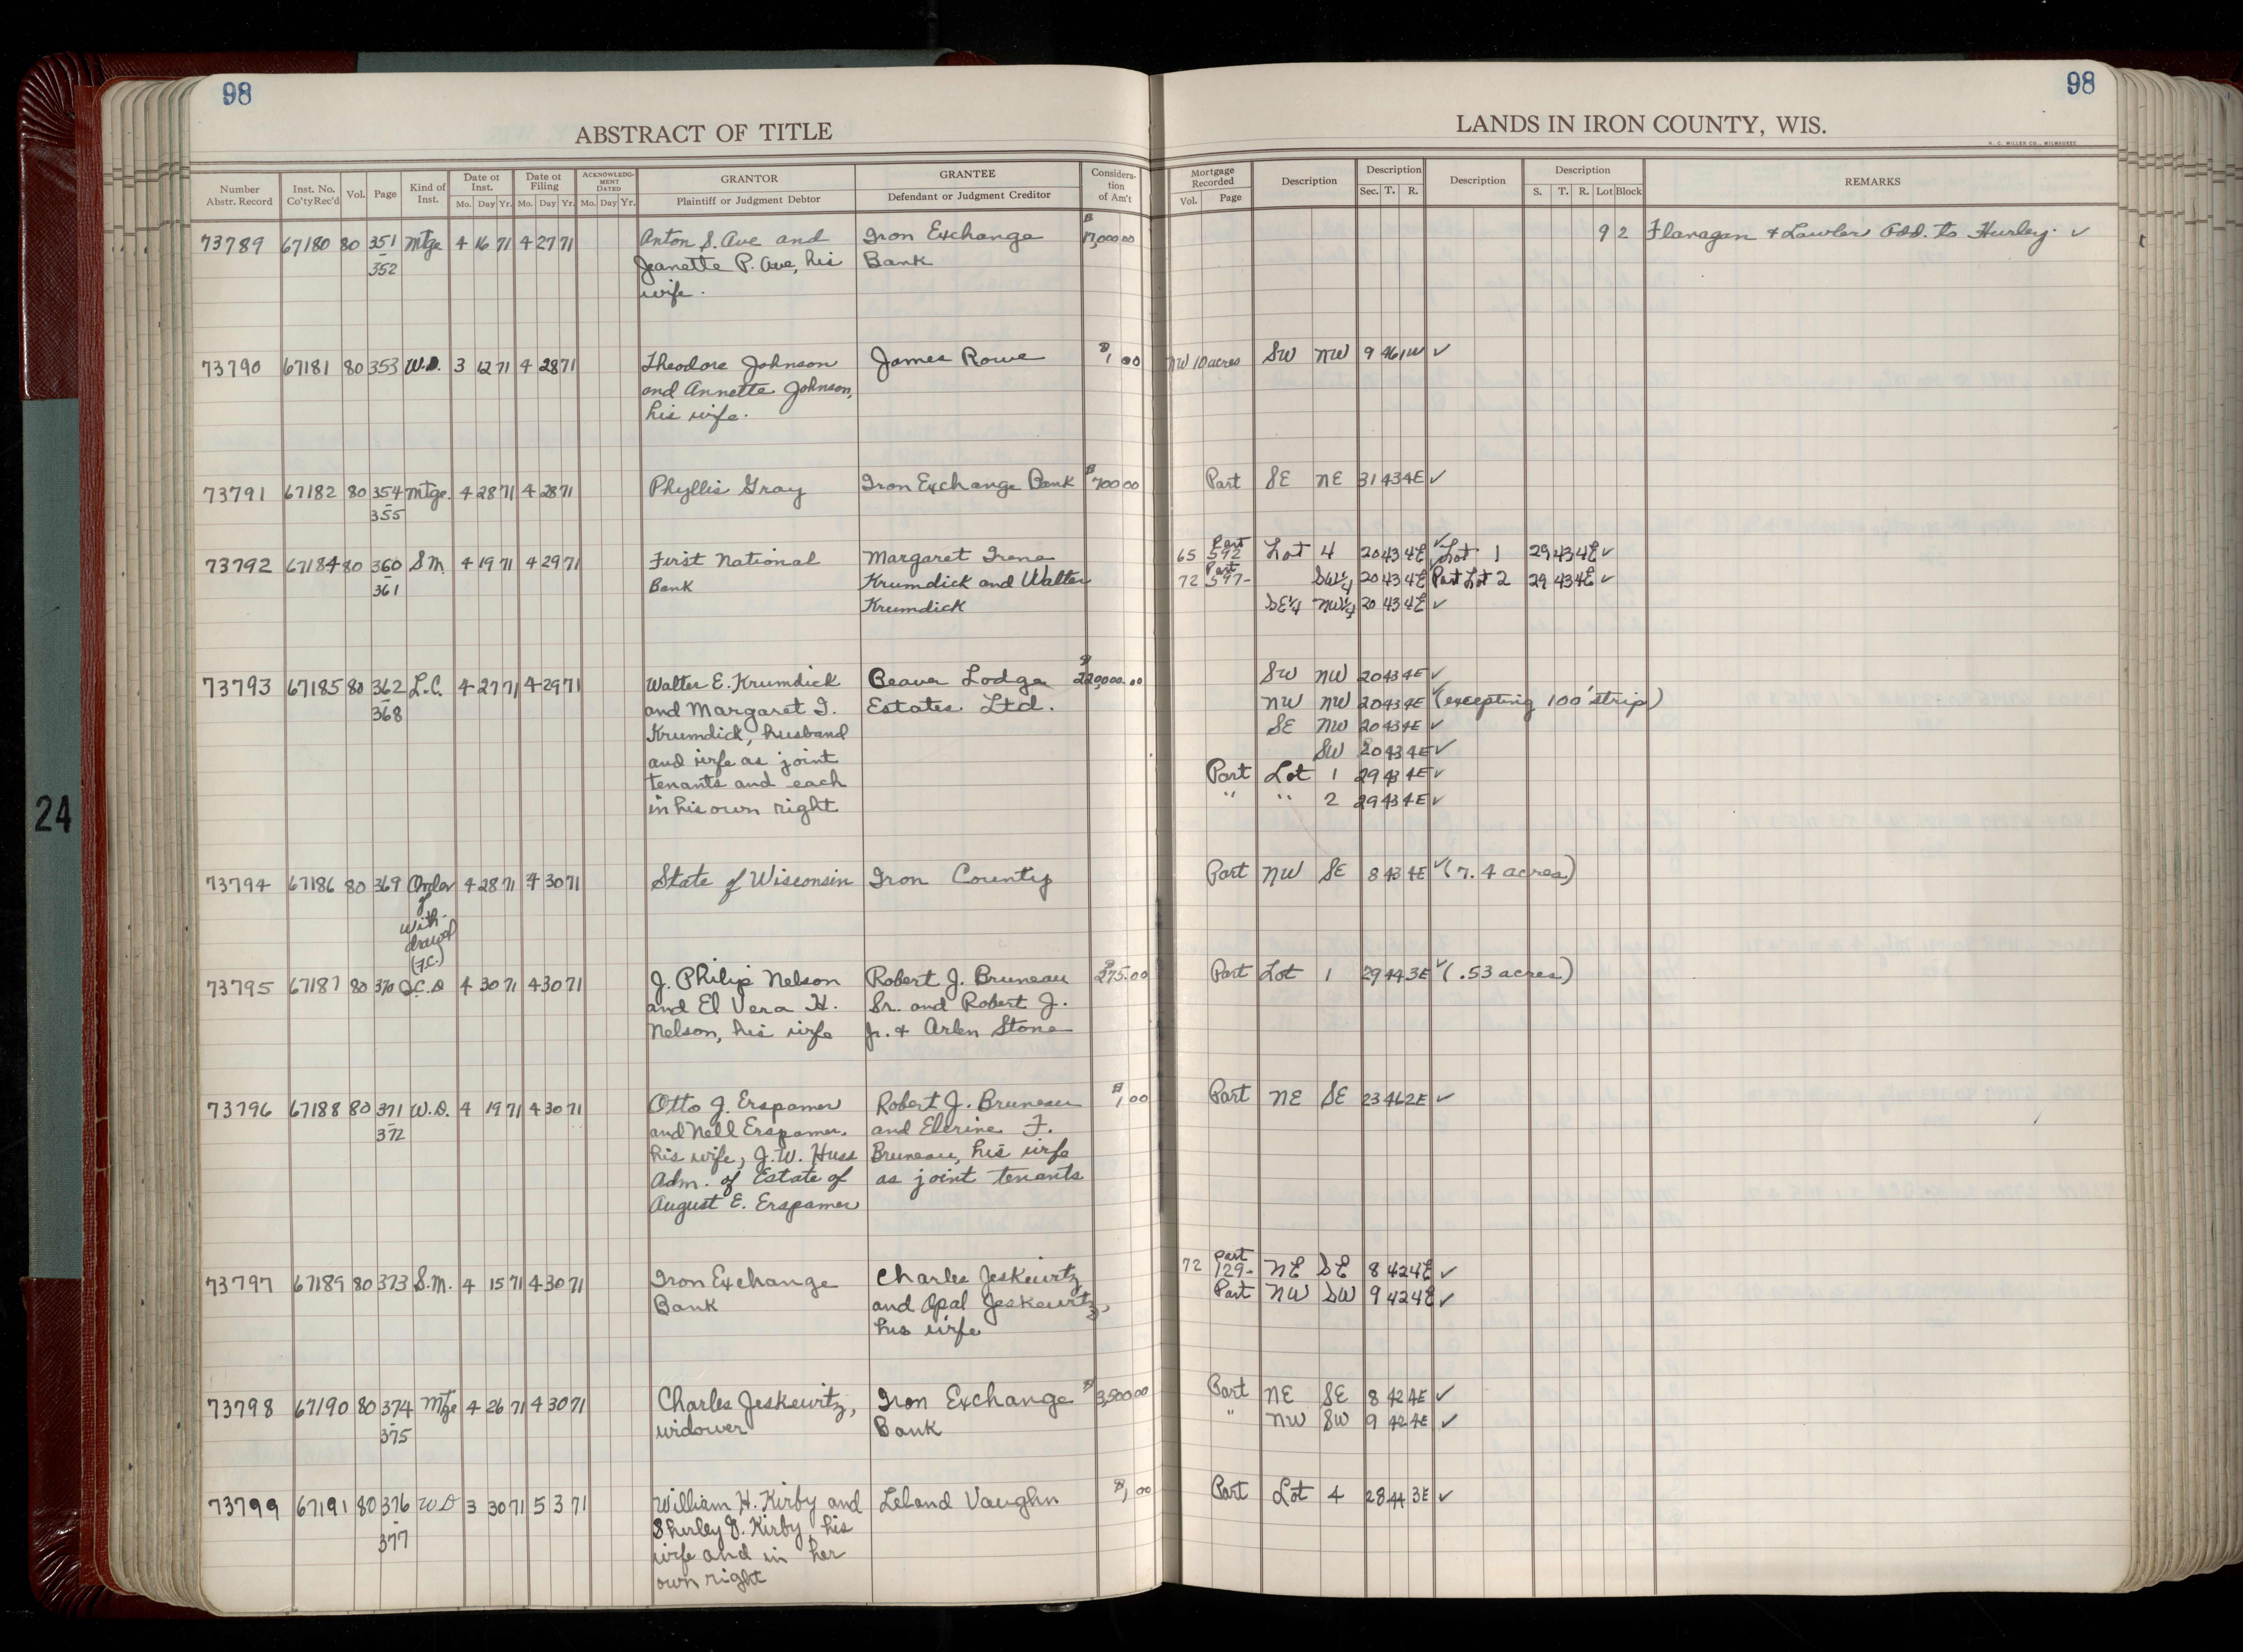 98
98
ABSTRACT OF TITLE
LANDS IN IRON COUNTY, WIS.
H. C. MILLER CO., MILWAUKEE
Number Abstr. Record Inst. No. Co'ty Rec'd Vol. Page Kind of Inst. Date of Inst. Mo. Day Yr. Date of Filing Mo. Day Yr. ACKNOWLEDGMENT DATED Mo. Day Yr. GRANTOR Plaintiff or Judgment Debtor GRANTEE Defendant or Judgment Creditor Consideration of Am't Mortgage Recorded Vol. Page Description Description Sec. T. R. Description Description S. T. R. Lot Block REMARKS
73789 67180 80 351 Mtge 4 16 71 4 27 71 Anton S. Ave and Iron Exchange 9 2 Flanagan & Lawler Add. to Hurley. ✓
- 352 Jeanette P. Ave, his Bank
wife.
73790 67181 80 353 W.D. 3 12 71 4 28 71 Theodore Johnson James Rowe $1 00 NW 10 acres SW NW 9 46 1W ✓
and Annette Johnson,
his wife.
73791 67182 80 354 Mtge. 4 28 71 4 28 71 Phyllis Gray Iron Exchange Bank $700 00 Part SE NE 31 43 4E ✓
- 355
73792 67184 80 360 S.M. 4 19 71 4 29 71 First National Margaret Irene 65 Part 592 Lot 4 20 43 4E ✓ Lot 1 29 43 4E ✓
- 361 Bank Krumdick and Walter 72 Part 597- SW¼ 20 43 4E ✓ Part Lot 2 29 43 4E ✓
Krumdick SE¼ NW¼ 20 43 4E ✓
73793 67185 80 362 L.C. 4 27 71 4 29 71 Walter E. Krumdick Beaver Lodge $220,000.00 SW NW 20 43 4E ✓
- 368 and Margaret I. Estates Ltd. NW NW 20 43 4E ✓ (excepting 100' strip)
Krumdick, husband SE NW 20 43 4E ✓
and wife as joint SW 20 43 4E ✓
tenants and each Part Lot 1 29 43 4E ✓
in his own right " " 2 29 43 4E ✓
73794 67186 80 369 Order 4 28 71 4 30 71 State of Wisconsin Iron County Part NW SE 8 43 4E ✓ (7.4 acres)
of
with-
drawal
(F.C.)
73795 67187 80 370 Q.C.D 4 30 71 4 30 71 J. Philip Nelson Robert J. Bruneau $275.00 Part Lot 1 29 44 3E ✓ (.53 acres)
and El Vera H. Sr. and Robert J.
Nelson, his wife Jr. & Arlen Stone
73796 67188 80 371 W.D. 4 19 71 4 30 71 Otto J. Erspamer Robert J. Bruneau $1,00 Part NE SE 23 46 2E ✓
- 372 and Nell Erspamer, and F.
his wife, J.W. Huss Bruneau, his wife
Adm. of Estate of as joint tenants
August E. Erspamer
73797 67189 80 373 S.M. 4 15 71 4 30 71 Iron Exchange Charles Jeskewitz 72 Part 129- NE SE 8 42 4E ✓
Bank and Opal Jeskewitz, Part NW SW 9 42 4E ✓
his wife
73798 67190 80 374 Mtge 4 26 71 4 30 71 Charles Jeskewitz, Iron Exchange $3,500 00 Part NE SE 8 42 4E ✓
- 375 widower Bank " NW SW 9 42 4E ✓
73799 67191 80 376 W D 3 30 71 5 3 71 William H. Kirby and Leland Vaughn $1, 00 Part Lot 4 28 44 3E ✓
- 377 Shirley J. Kirby, his
wife and in her
own right
24